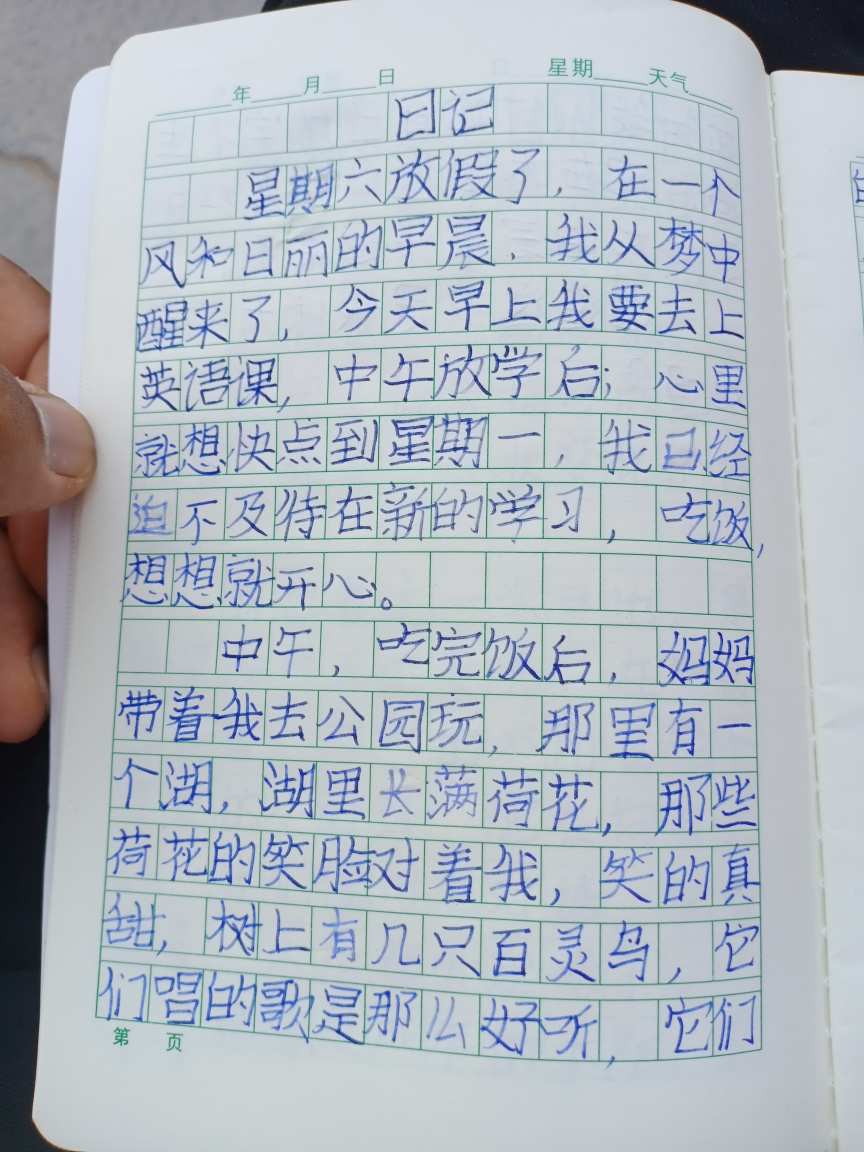 年 月 日 星期 天气
日记
星期六放假了，在一个
风和日丽的早晨，我从梦中
醒来了，今天早上我要去上
英语课，中午放学后；心里
就想快点到星期一，我已经
迫不及待在新的学习，吃饭，
想想就开心。
中午，吃完饭后，妈妈
带着我去公园玩，那里有一
个湖，湖里长满荷花，那些
荷花的笑脸对着我，笑的真
甜，树上有几只百灵鸟，它
们唱的歌是那么好听，它们
第 页